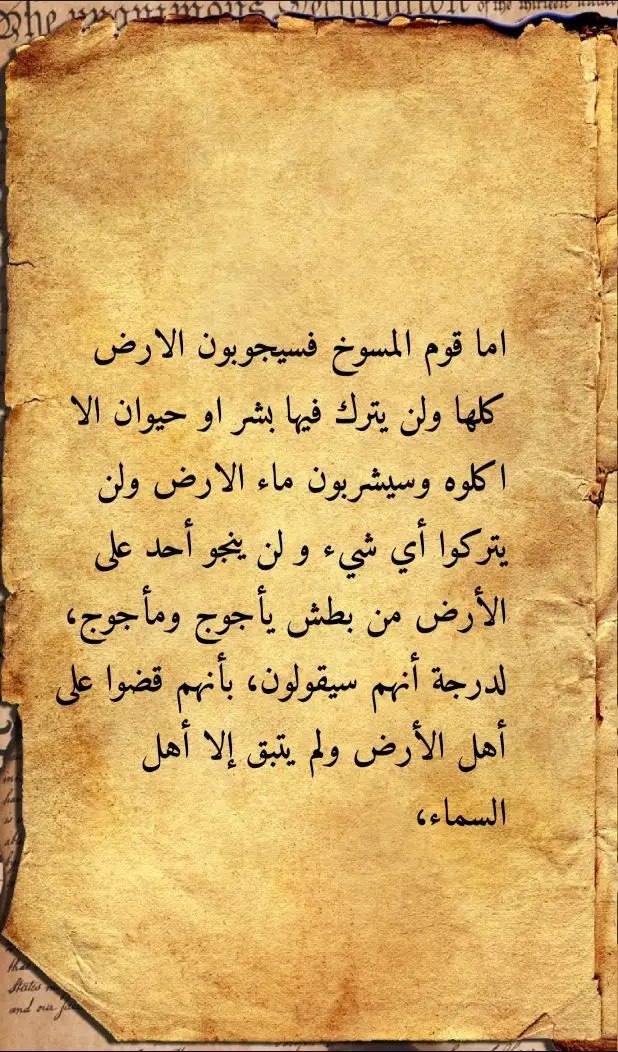 The unanimous Declaration of the thirteen united
اما قوم المسوخ فسيجوبون الارض
كلها ولن يترك فيها بشر او حيوان الا
اكلوه وسيشربون ماء الارض ولن
يتركوا أي شيء و لن ينجو أحد على
الأرض من بطش يأجوج ومأجوج،
لدرجة أنهم سيقولون، بأنهم قضوا على
أهل الأرض ولم يتبق إلا أهل
السماء،
States
and our